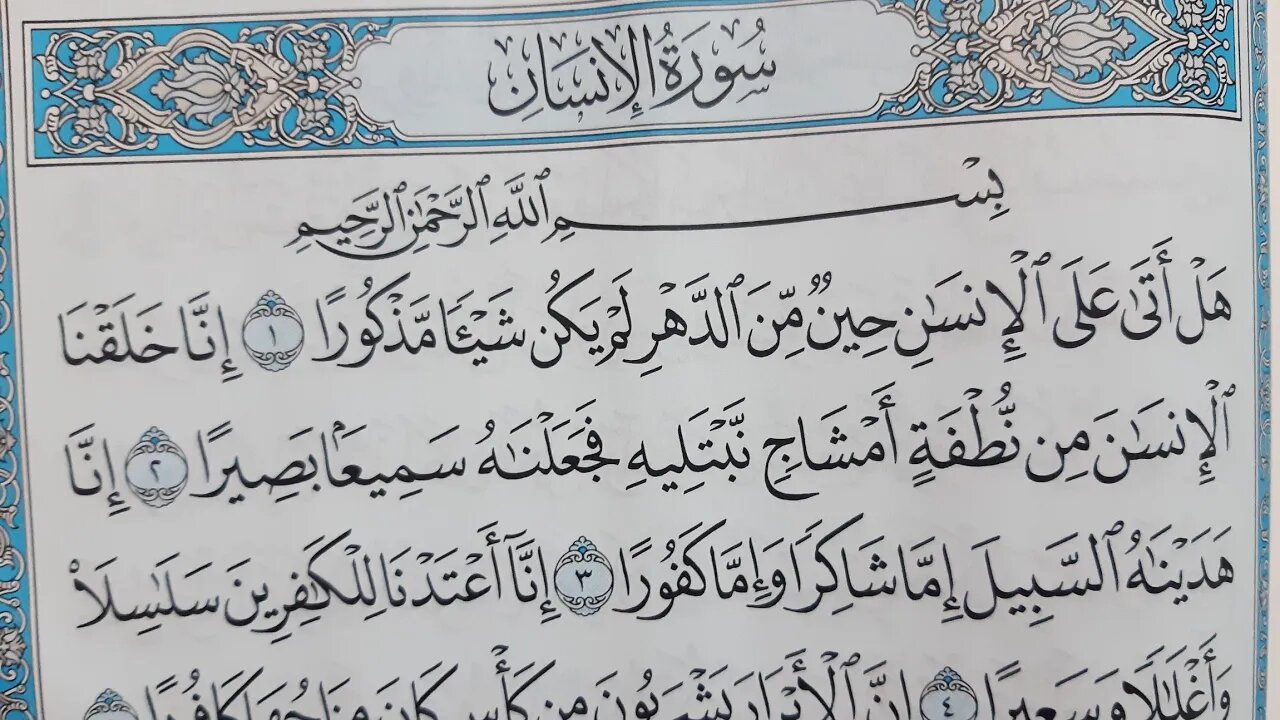 سُورَةُ الإِنسَانِ
بِسْمِ ٱللَّهِ ٱلرَّحْمَٰنِ ٱلرَّحِيمِ
هَلْ أَتَىٰ عَلَى ٱلْإِنسَٰنِ حِينٌ مِّنَ ٱلدَّهْرِ لَمْ يَكُن شَيْـًٔا مَّذْكُورًا ١ إِنَّا خَلَقْنَا
ٱلْإِنسَٰنَ مِن نُّطْفَةٍ أَمْشَاجٍ نَّبْتَلِيهِ فَجَعَلْنَٰهُ سَمِيعًۢا بَصِيرًا ٢ إِنَّا
هَدَيْنَٰهُ ٱلسَّبِيلَ إِمَّا شَاكِرًا وَإِمَّا كَفُورًا ٣ إِنَّآ أَعْتَدْنَا لِلْكَٰفِرِينَ سَلَٰسِلَا۟
وَأَغْلَٰلًا وَسَعِيرًا ٤ إِنَّ ٱلْأَبْرَارَ يَشْرَبُونَ مِن كَأْسٍ كَانَ مِزَاجُهَا كَافُورًا